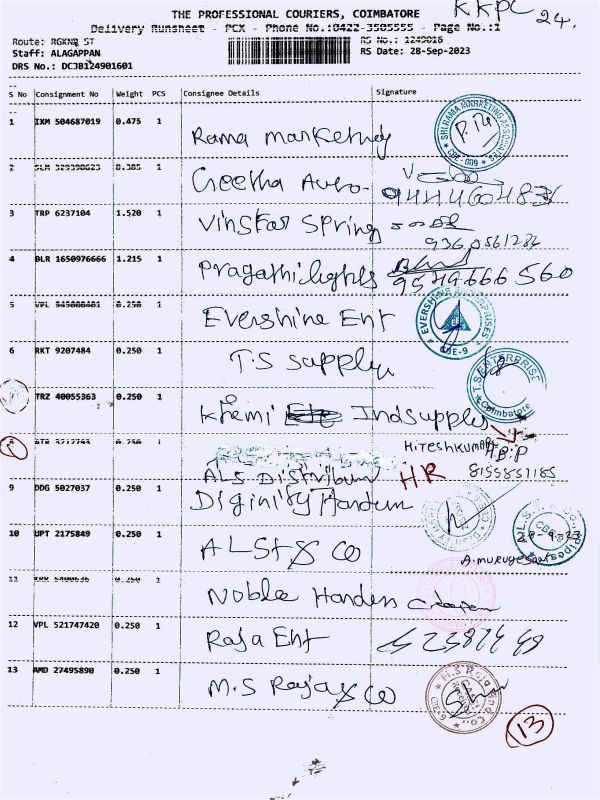 THE PROFESSIONAL COURIERS, COIMBATORE KKPC 24.
Delivery Runsheet - PCX - Phone No.:0422-3505555 - Page No.:1
Route: RGKNR ST
RS No.: 1249016
Staff: ALAGAPPAN
RS Date: 28-Sep-2023
DRS No.: DCJB124901601
S No Consignment No Weight PCS Consignee Details Signature
1 IXM 504687019 0.475 1 Rama Marketing SRI RAMA MARKETING ASSOCIATES CBE-009
2 0.385 1 Geetha Auto
3 TRP 6237104 1.520 1 Vinstar Spring
4 BLR 1650976666 1.215 1 Pragathi lights
5 VPL 0.250 1 Evershine Ent EVERSHINE ENTERPRISES CBE-9
6 RKT 9207484 0.250 1 T.S Supply T.S ENTERPRISE Coimbatore
TRZ 40055363 0.250 1 Khemi Indsupplys
HITESHKUMAR
H.B.P
8 0.250 1 ALS Distribum H.R 8155851185
9 DDG 5027037 0.250 1 Diginity Handum
10 UPT 2175849 0.250 1 ALSt & Co
A.murugesan
11 0.250 1 Noble Handens
12 VPL 521747420 0.250 1 Raja Ent
13 AMD 27495890 0.250 1 M.S Raja & Co
13